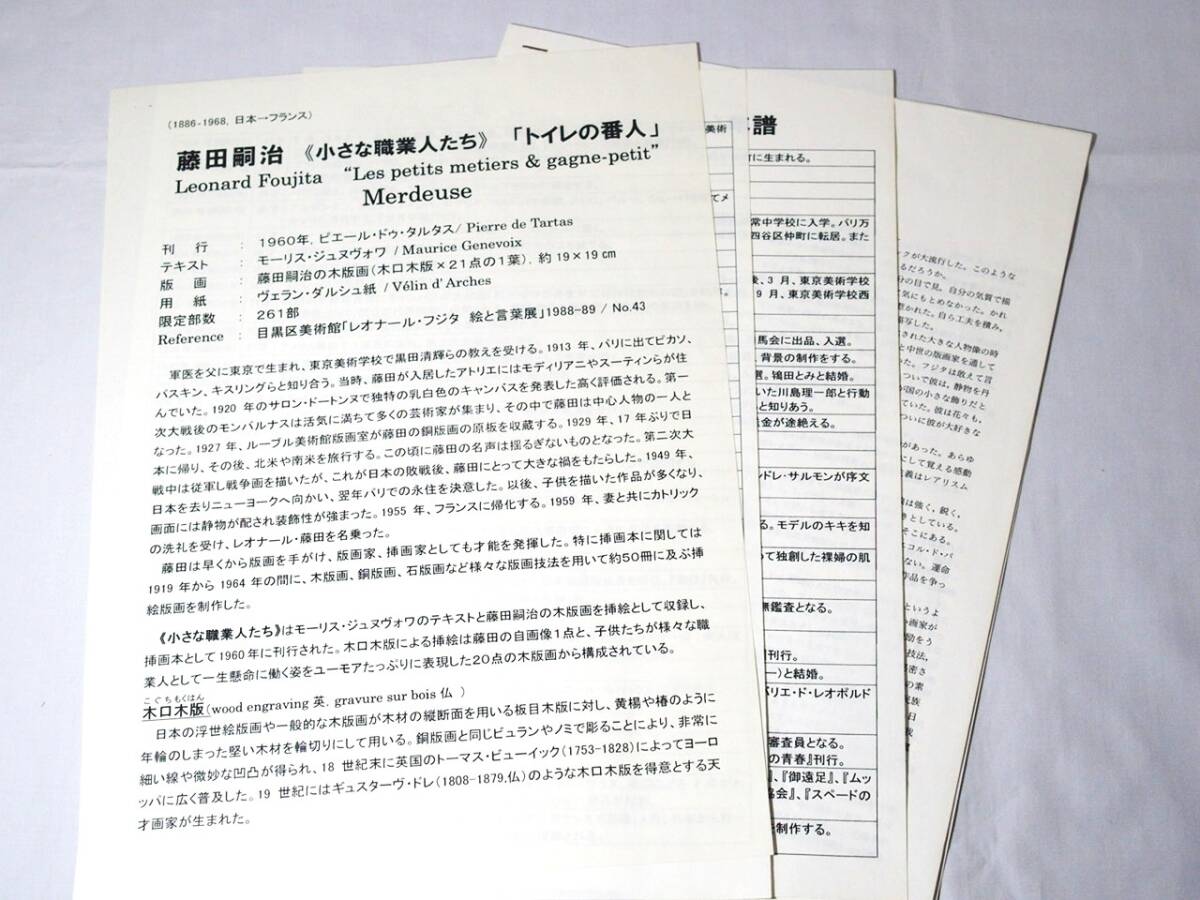 (1886-1968, 日本→フランス)
藤田嗣治 《小さな職業人たち》 「トイレの番人」
Leonard Foujita “Les petits metiers & gagne-petit”
Merdeuse
刊 行 : 1960年, ピエール・ドゥ・タルタス/ Pierre de Tartas
テキスト : モーリス・ジュヌヴォワ / Maurice Genevoix
版 画 : 藤田嗣治の木版画(木口木版×21点の1葉), 約19×19㎝
用 紙 : ヴェラン・ダルシュ紙 / Vélin d' Arches
限定部数 : 261部
Reference : 目黒区美術館「レオナール・フジタ 絵と言葉展」1988-89 / No.43
軍医を父に東京で生まれ、東京美術学校で黒田清輝らの教えを受ける。1913 年、パリに出てピカソ、
パスキン、キスリングらと知り合う。当時、藤田が入居したアトリエにはモディリアニやスーティンらが住
んでいた。1920 年のサロン・ドートンヌで独特の乳白色のキャンバスを発表した高く評価される。第一
次大戦後のモンパルナスは活気に満ちて多くの芸術家が集まり、その中で藤田は中心人物の一人と
なった。1927 年、ルーブル美術館版画室が藤田の銅版画の原板を収蔵する。1929 年、17 年ぶりで日
本に帰り、その後、北米や南米を旅行する。この頃に藤田の名声は揺るぎないものとなった。第二次大
戦中は従軍し戦争画を描いたが、これが日本の敗戦後、藤田にとって大きな禍をもたらした。1949 年、
日本を去りニューヨークへ向かい、翌年パリでの永住を決意した。以後、子供を描いた作品が多くなり、
画面には静物が配され装飾性が強まった。1955 年、フランスに帰化する。1959 年、妻と共にカトリック
の洗礼を受け、レオナール・藤田を名乗った。
藤田は早くから版画を手がけ、版画家、挿画家としても才能を発揮した。特に挿画本に関しては
1919 年から 1964 年の間に、木版画、銅版画、石版画など様々な版画技法を用いて約50冊に及ぶ挿
絵版画を制作した。
《小さな職業人たち》はモーリス・ジュヌヴォワのテキストと藤田嗣治の木版画を挿絵として収録し、
挿画本として1960年に刊行された。木口木版による挿絵は藤田の自画像1点と、子供たちが様々な職
業人として一生懸命に働く姿をユーモアたっぷりに表現した20点の木版画から構成されている。
こぐちもくはん
木口木版(wood engraving 英. gravure sur bois 仏 )
日本の浮世絵版画や一般的な木版画が木材の縦断面を用いる板目木版に対し、黄楊や椿のように
年輪のしまった堅い木材を輪切りにして用いる。銅版画と同じビュランやノミで彫ることにより、非常に
細い線や微妙な凹凸が得られ、18 世紀末に英国のトーマス・ビューイック(1753-1828)によってヨーロ
ッパに広く普及した。19 世紀にはギュスターヴ・ドレ(1808-1879,仏)のような木口木版を得意とする天
才画家が生まれた。
譜
美術
に生まれる。
てメ
常中学校に入学。パリ万
四谷区仲町に転居。また
後、3 月、東京美術学校
9 月、東京美術学校西
馬会に出品、入選。
、背景の制作をする。
選。鴇田とみと結婚。
いた川島理一郎と行動
と知りあう。
金が途絶える。
ンドレ・サルモンが序文
る。モデルのキキを知
って独創した裸婦の肌
無鑑査となる。
刊行。
ー)と結婚。
バリエ・ド・レオポルド
審査員となる。
の青春』刊行。
』、『御遠足』、『ムッ
協会』、『スペードの
制作する。
ックが大流行した。このような
るだろうか。
分の目で見、自分の気質で描
気にもとめなかった。かれ
惹かれた。自ら工夫を積み、
写した。
された大きな人物像の時
と中世の版画家を通して
った。フジタは敢えて言
ついで彼は、静物を丹
が国の小さな飾りだと
ていた。彼は花々も、
ついに彼が大好きな
があった。あらゆ
にして覚える感動
義はレアリスム
は強く、鋭く、
としている。
そこにある。
コル・ド・パ
ない。運命
作品を争っ
というよ
画家が
助をう
技法、
密さ
の素
民族
日
我